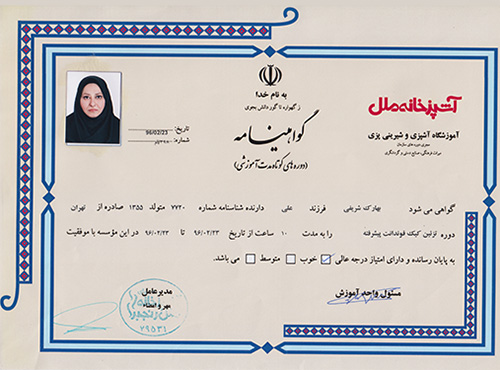 به نام خدا
ز گهواره تا گور دانش بجوی
گواهینامه
(دوره های کوتاه مدت آموزشی)
آشپزخانه ملل
آموزشگاه آشپزی و شیرینی پزی
مجری دوره های سازمان
میراث فرهنگی، صنایع دستی و گردشگری
تاریخ: 96/02/23
شماره:
گواهی می شود بهارک شریفی فرزند علی دارنده شناسنامه شماره ۷۷۲۰ متولد ۱۳۵۵ صادره از تهران
دوره تزئین کیک فوندانت پیشرفته را به مدت ۱۰ ساعت از تاریخ ۹۶/۰۲/۲۳ تا ۹۶/۰۲/۲۳ در این مؤسسه با موفقیت
به پایان رسانده و دارای امتیاز درجه عالی خوب متوسط می باشد.
مسئول واحد آموزش
مدیرعامل
مهر و امضاء
29531